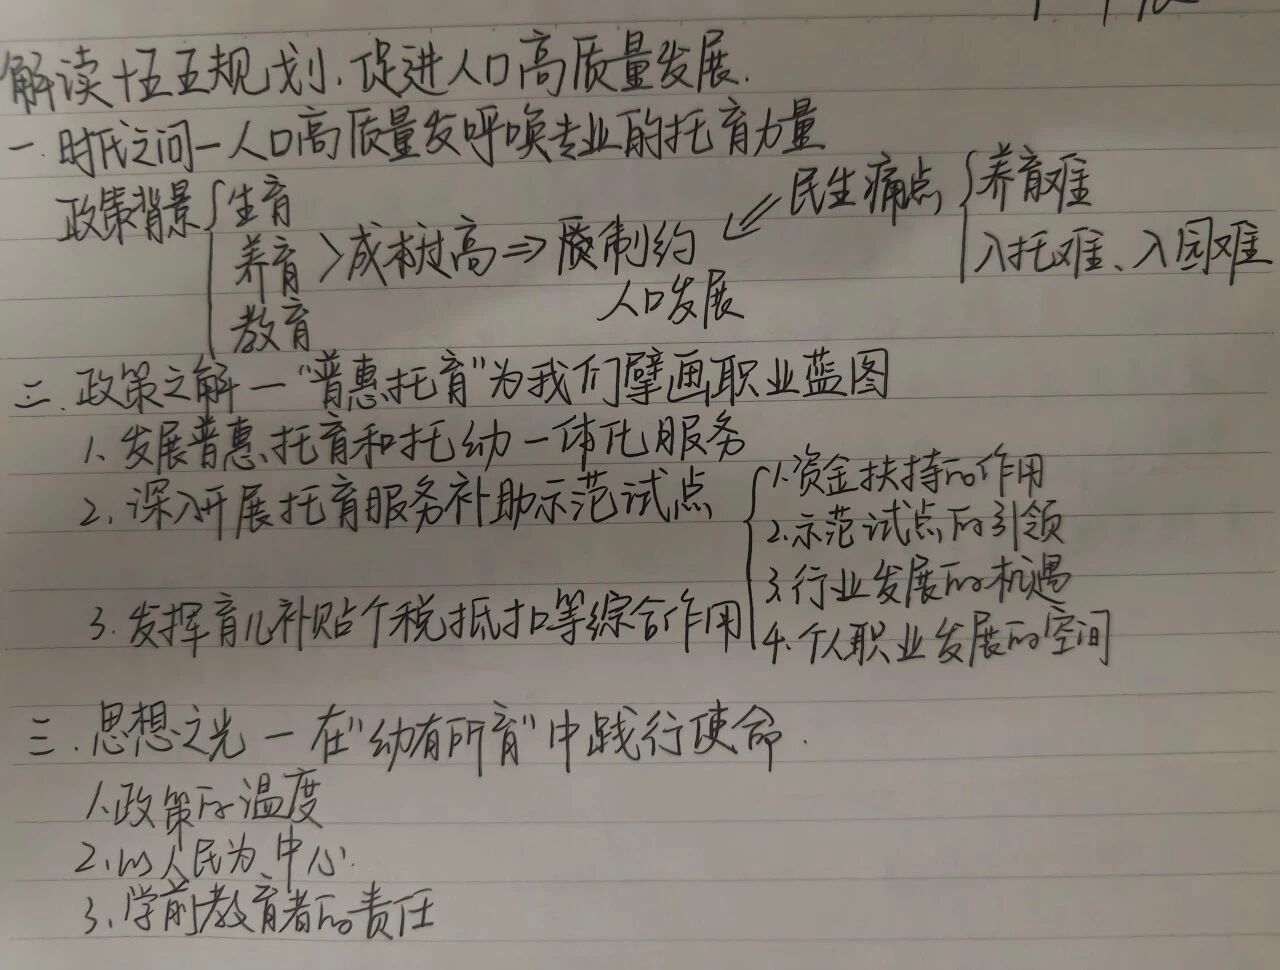 解读十五五规划.促进人口高质量发展.
一.时代之问一人口高质量发呼唤专业的托育力量
政策背景 生育 养育 教育 >成本过高⇒ 制约人口发展 ⇐ 民生痛点 养育难 入托难、入园难
二.政策之解一“普惠托育”为我们擘画职业蓝图
1、发展普惠托育和托幼一体化服务
2、深入开展托育服务补助示范试点
3.发挥育儿补贴个税抵扣等综合作用
1.资金扶持的作用
2.示范试点的引领
3.行业发展的机遇
4.个人职业发展的空间
三.思想之光一在“幼有所育”中践行使命.
1、政策的温度
2、以人民为中心.
3、学前教育者的责任